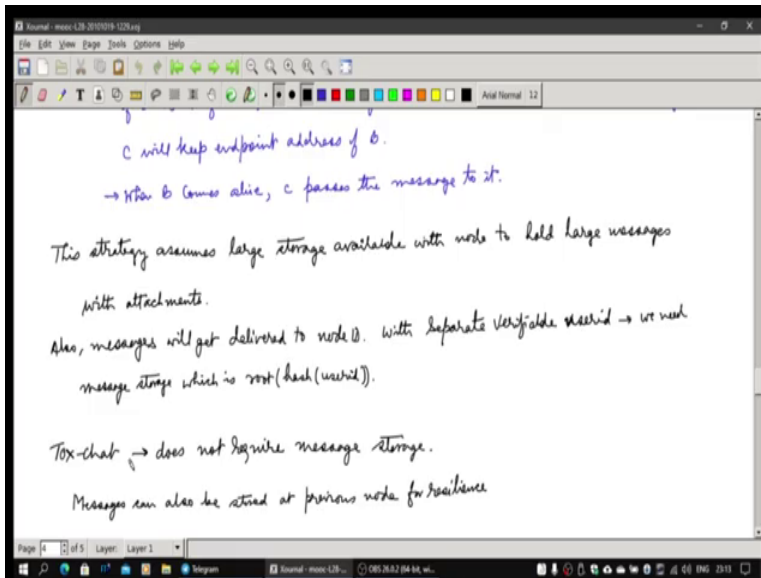 Xournal - mooc-L28-20101019-1229.xoj
File Edit View Page Tools Options Help
Arial Normal 12
C will keep endpoint address of B.
→ When B comes alive, C passes the message to it.
This strategy assumes large storage available with node to hold large messages
with attachments.
Also, messages will get delivered to node B. With separate verifiable userid → we need
message storage which is root(hash(userid)).
Tox-chat → does not require message storage.
Messages can also be stored at previous node for resilience
Page 4 of 5 Layer: Layer 1
Telegram Xournal - mooc-L28-... OBS 26.0.2 (64-bit, wi... ENG 23:13